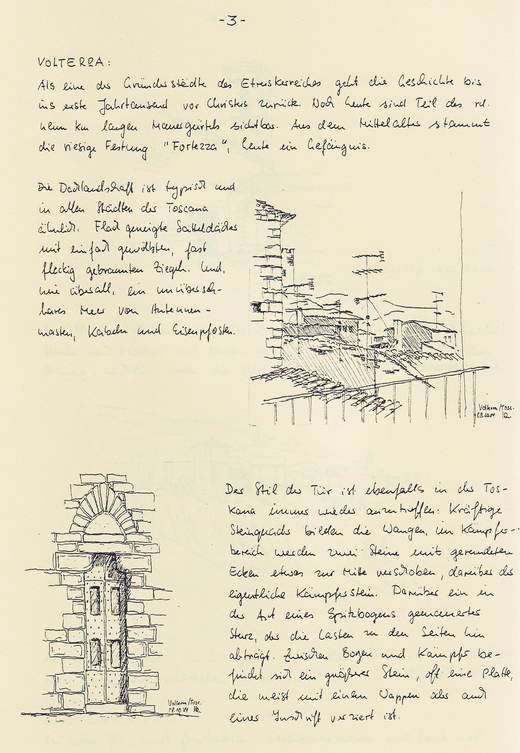 -3-
VOLTERRA:
Als eine der Gründerstädte des Etruskerreiches geht die Geschichte bis
ins erste Jahrtausend vor Christus zurück. Noch heute sind Teil des
km langen Mauergürtels sichtbar. Aus dem Mittelalter stammt
die riesige Festung "Fortezza", heute ein Gefängnis.
Die Dachlandschaft ist typisch und
in allen Städten der Toscana
ähnlich. Flach geneigte Satteldächer
mit einfach gewölbten, fast
fleckig gebrannten Ziegeln. Und,
wie überall, ein unüberseh-
bares Meer von Antennen-
masten, Kabeln und Eisenpfosten.
Volterra/Tosc.
Der Stil der Tür ist ebenfalls in der Tos-
kana immer wieder anzutreffen: Kräftige
Steinquader bilden die Wangen, im Kämpfer-
bereich werden zwei Steine mit gerundeten
Ecken etwas zur Mitte verschoben, darüber der
eigentliche Kämpferstein. Darüber ein in
der Art eines Spitzbogens gemauerter
Sturz, der die Lasten zu den Seiten hin
abträgt. Zwischen Bogen und Kämpfer be-
findet sich ein größerer Stein, oft eine Platte,
die meist mit einem Wappen oder auch
einer Inschrift verziert ist.
Volterra/Tosc.